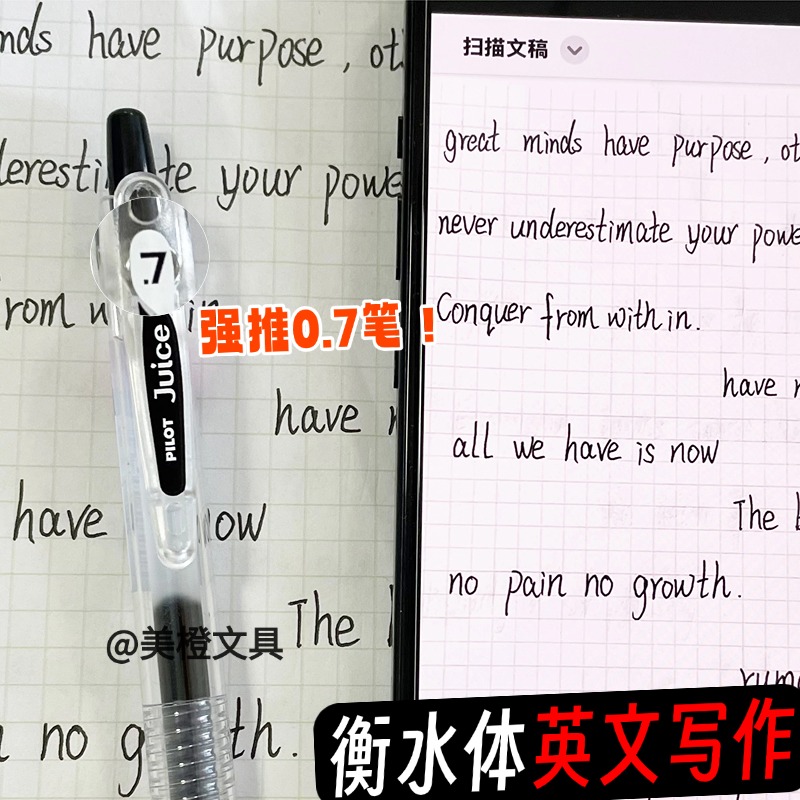 nds have purpose, ot
your powe
have
have
now
The
no
th.
.7
PILOT Juice
强推0.7笔！
@美橙文具
扫描文稿
great minds have purpose, ot
never underestimate your powe
Conquer from within.
have
all we have is now
The
no pain no growth.
衡水体英文写作